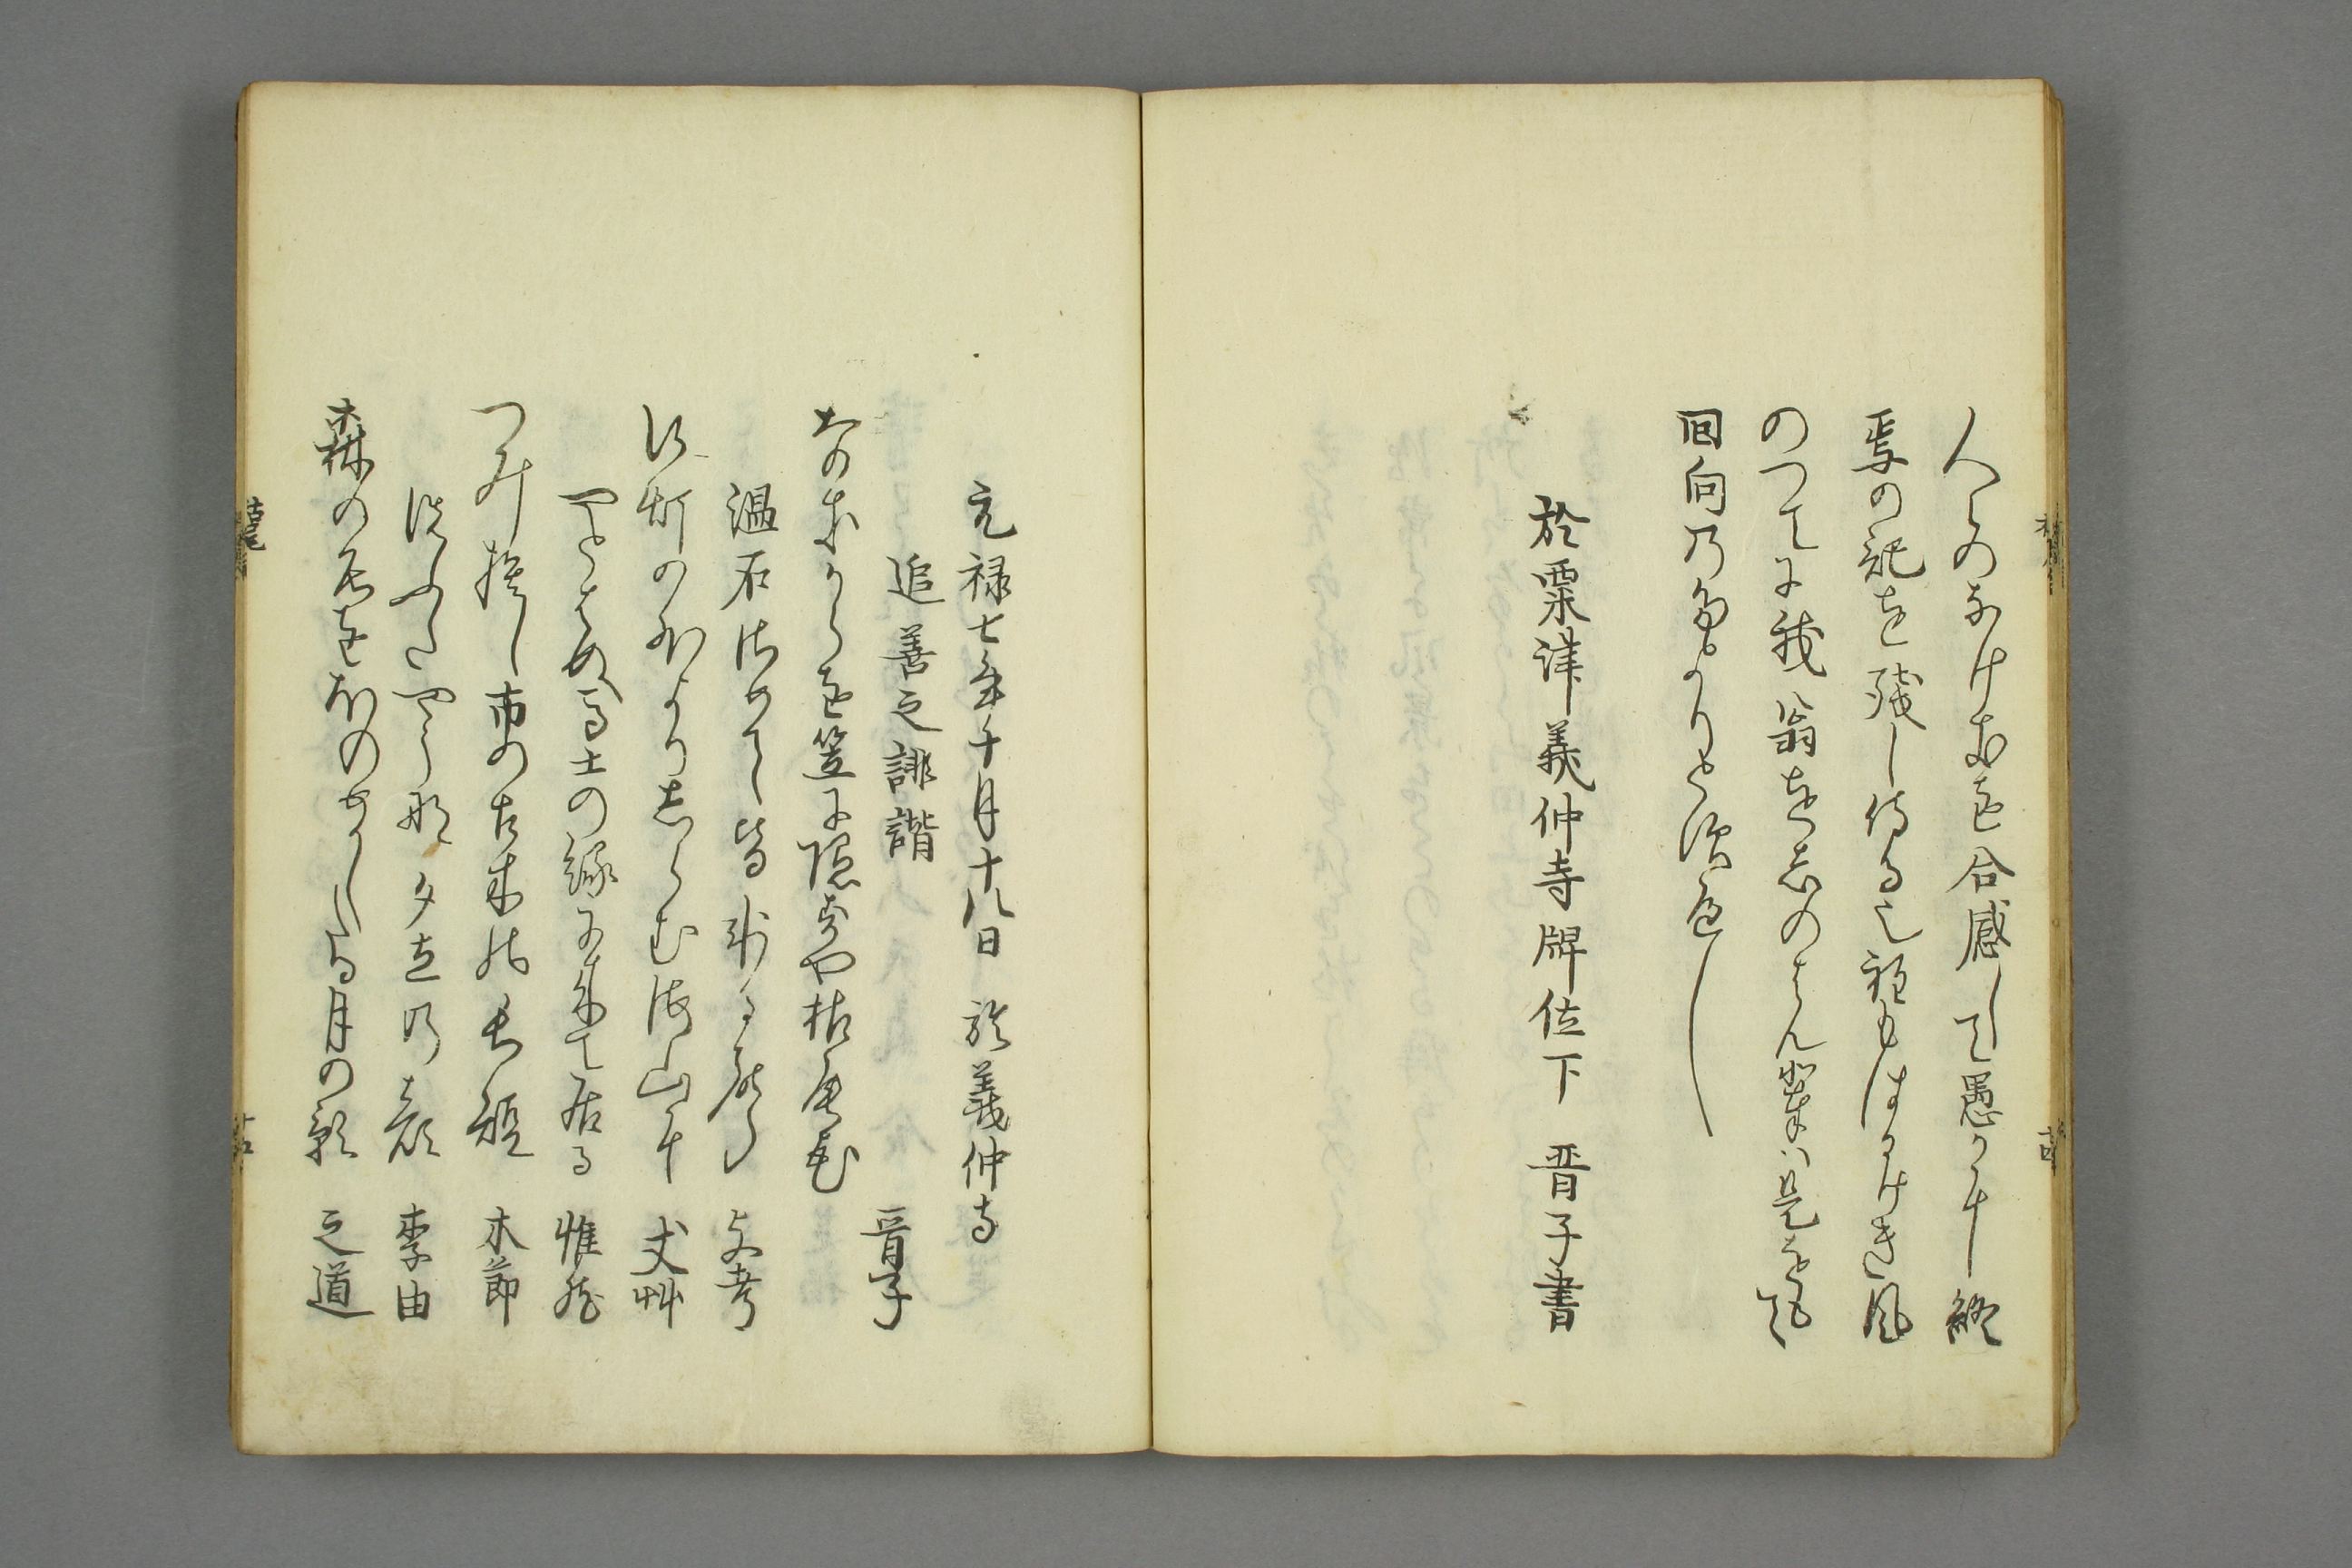 人々のなけきを合感して愚かに終
焉の記を残し侍る也程もはるけき風
のつてに我翁をしのはん輩は是をもて
回向のたよりとすへし
於粟津義仲寺牌位下 晋子書
元禄七年十月十八日 於義仲寺
追善之誹諧
なきからを笠に隠すや枯尾花 晋子
温石さめて皆氷る聲 支考
行灯の外よりしらむ海山に 丈艸
やとはぬ馬士の縁に来て居る 惟然
つみ捨し市の古木の長短 木節
洗ふたやうな夕立の顔 李由
森の名をほのめかしたる月の影 之道